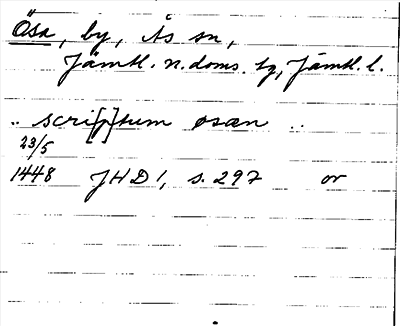 Ösa, by, Ås sn,
Jämtl. n. doms. tg, Jämtl. l.
.. scri[p]tum osan ..
23/5
1448 JHD 1, s. 297 or